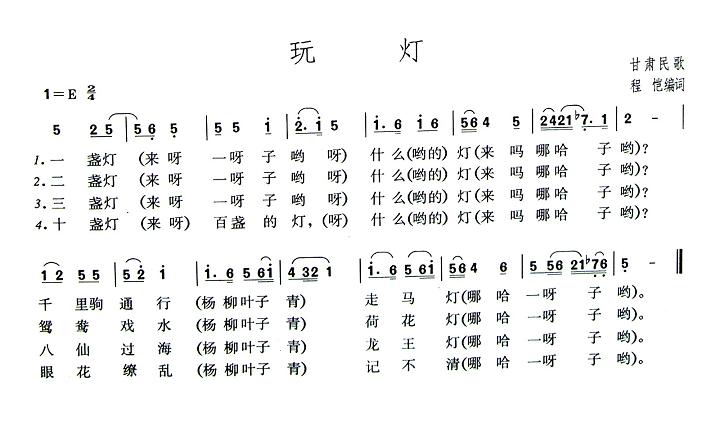 玩 灯
甘肃民歌
1=E 2/4 程 恺编词
5 2 5 | 5 6. 5 | 5 5 i | 2. i 5 | i. 6 i 6 | 5 6 4 5 | 2421 b7. 1 | 2 - |
1.一 盏灯 (来 呀 一呀 子 哟 呀) 什么(哟的) 灯(来 吗 哪哈 子 哟)?
2.二 盏灯 (来 呀 一呀 子 哟 呀) 什么(哟的) 灯(来 吗 哪哈 子 哟)?
3.三 盏灯 (来 呀 一呀 子 哟 呀) 什么(哟的) 灯(来 吗 哪哈 子 哟)?
4.十 盏灯 (来 呀) 百盏 的 灯,(呀) 什么(哟的) 灯(来 吗 哪哈 子 哟)?
i 2 5 5 | 5 2 i | i. 6 5 6 i | 4 32 1 | i. 6 5 6 i | 5 6 4 6 | 5 56 21 b7 6 | 5 - ‖
千 里驹 通 行 (杨 柳叶子 青) 走 马 灯(哪 哈 一呀 子 哟)。
鸳 鸯 戏 水 (杨 柳叶子 青) 荷 花 灯(哪 哈 一呀 子 哟)。
八 仙 过 海 (杨 柳叶子 青) 龙 王 灯(哪 哈 一呀 子 哟)。
眼 花 缭 乱 (杨 柳叶子 青) 记 不 清(哪 哈 一呀 子 哟)。